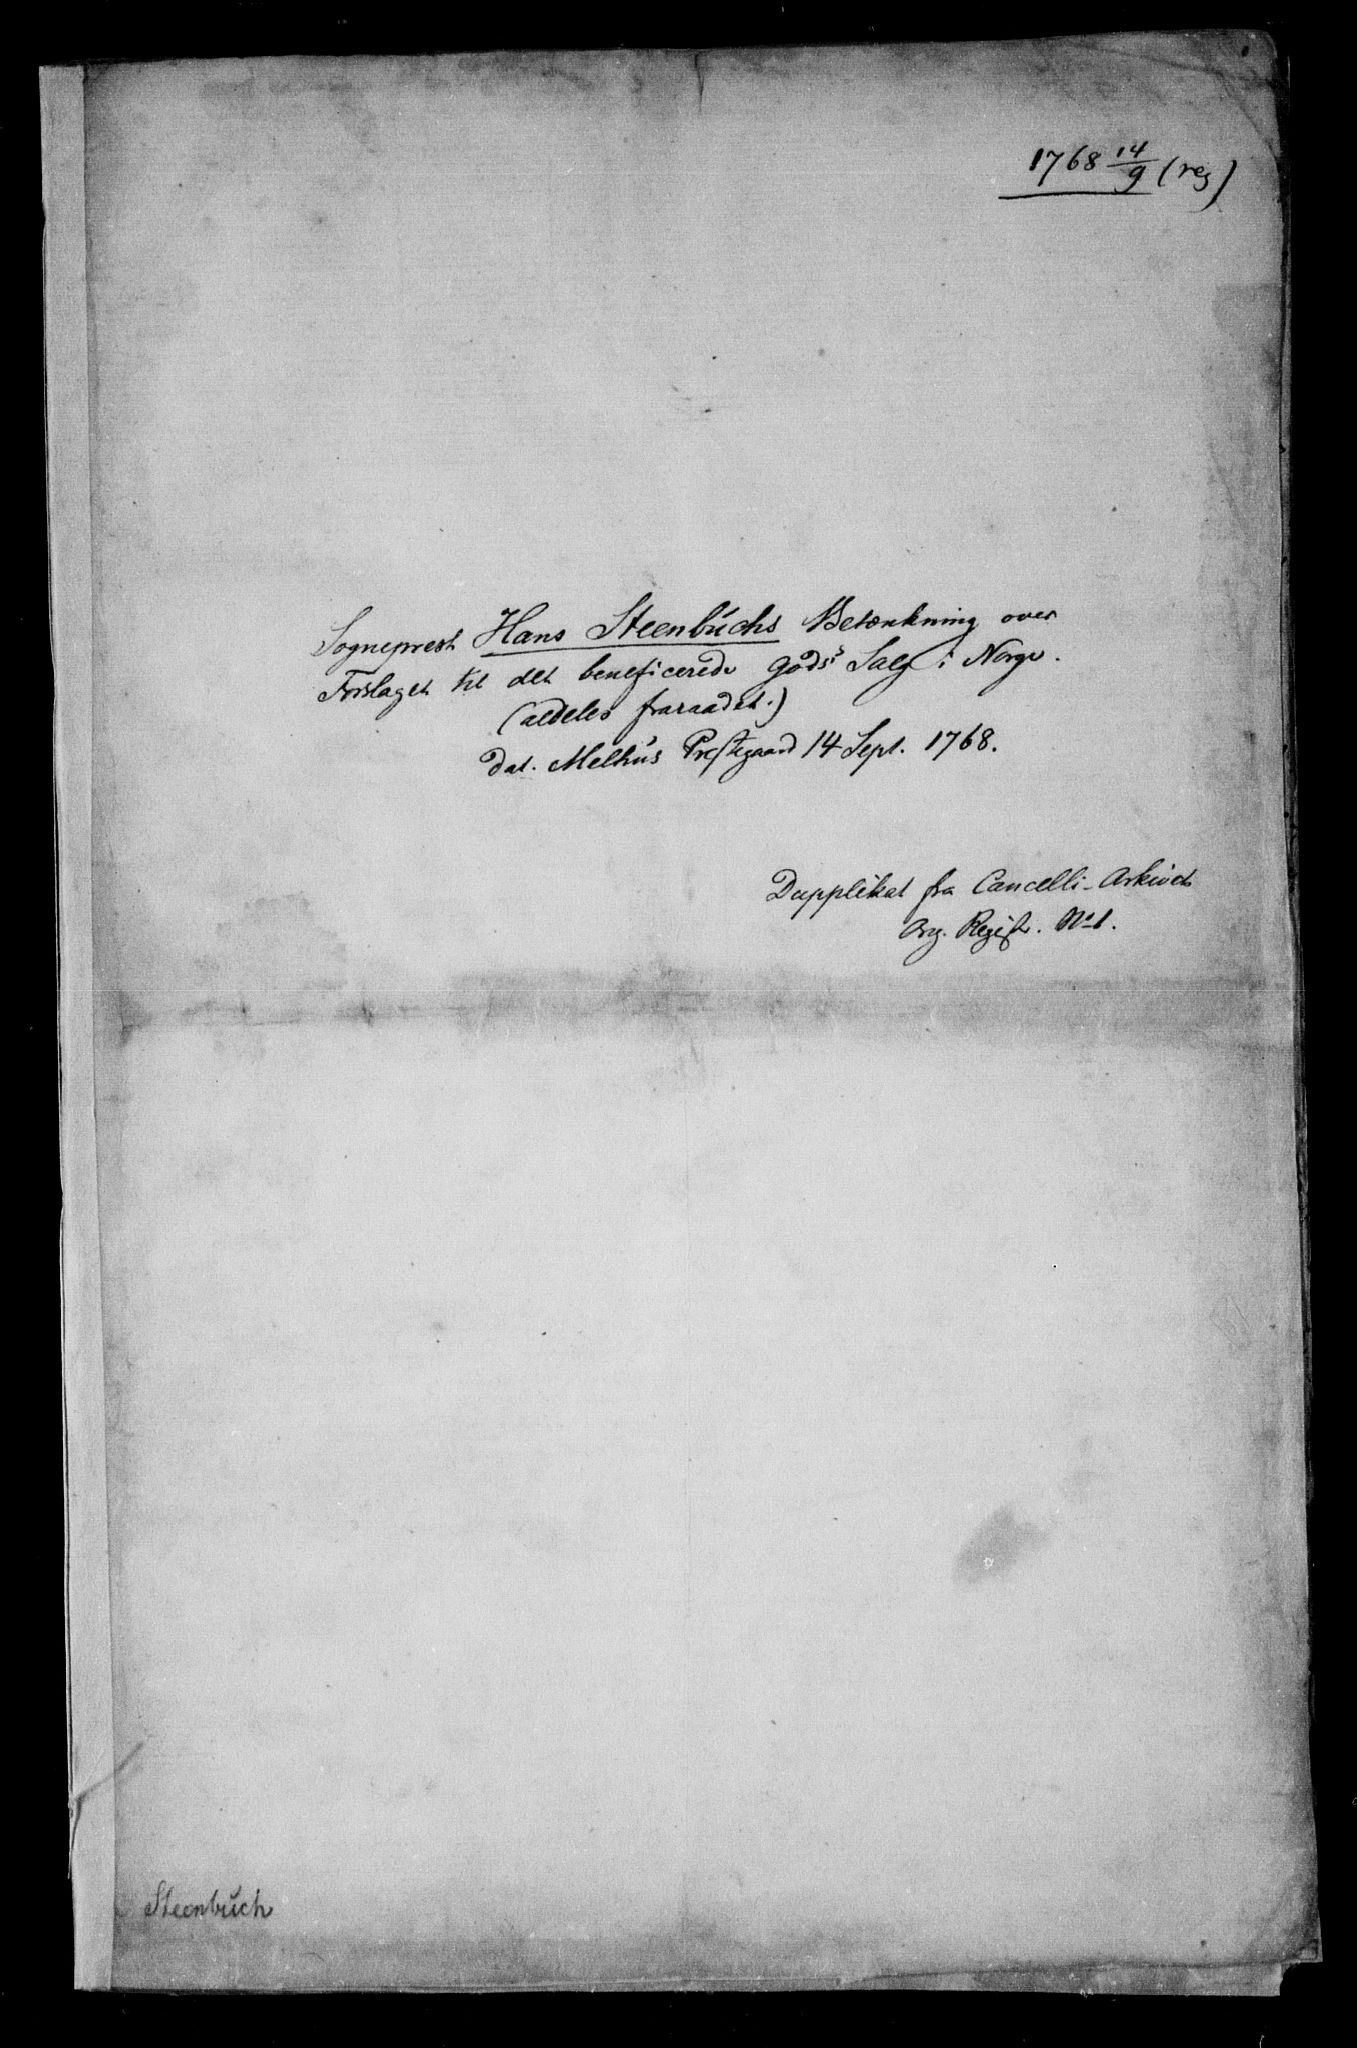 1768 14/9 (reg)
Sogneprest Hans Steenbúchs Betænkning over
Forslaget til det beneficerede Gods's Salg i Norge.
(aldeles fraraadet.)
dat. Melhús Prestegaard 14 Sept. 1768.
Dupplikat fra Cancelli-Arkivet
Regist. No 1.
Steenbúch